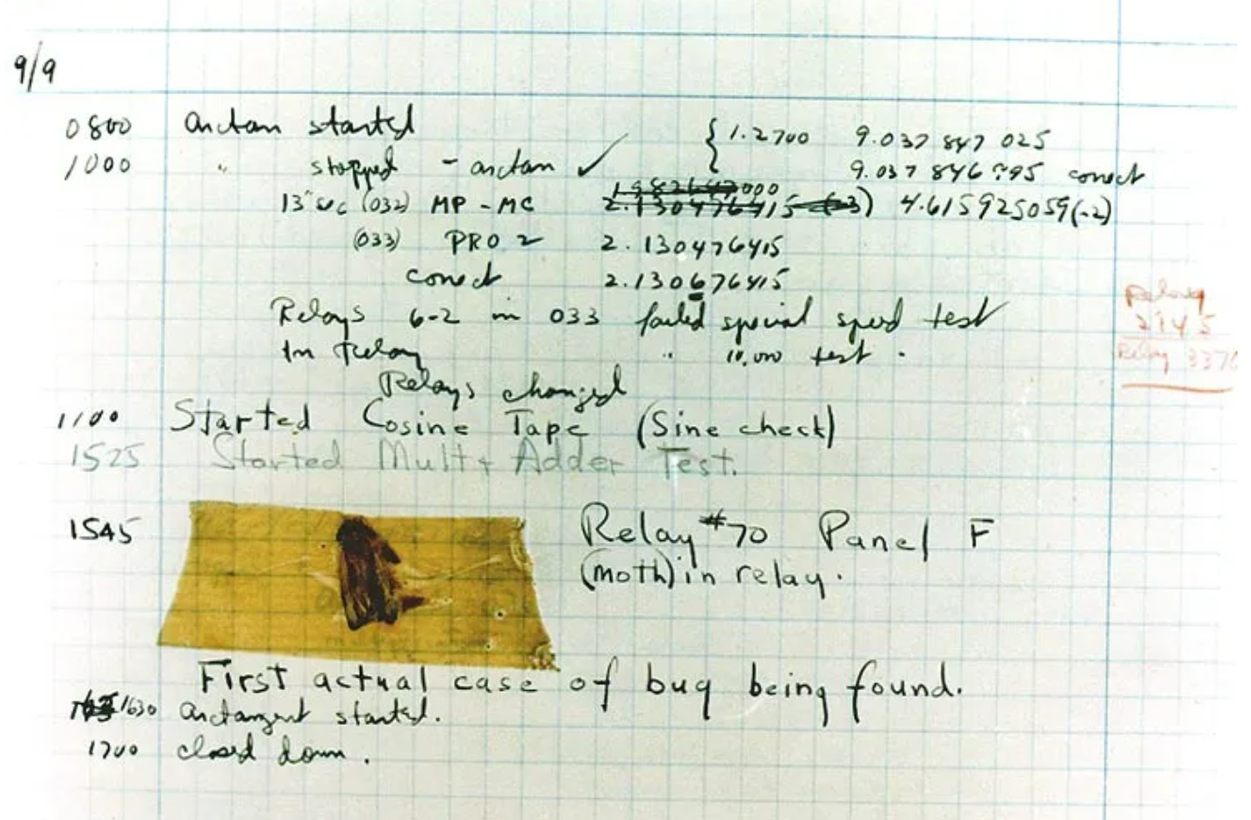 9/9
0800 arctan started { 1.2700 9.037 847 025
1000 " stopped - arctan ✓ 9.037 846 995 correct
13" sec (032) MP - MC 2.130476415 (-3) 4.615925059(-2)
(033) PRO 2 2.130476415
correct 2.130676415
Relays 6-2 in 033 failed special speed test
In Relay " 10,000 test.
Relays changed
Relay
2145
Relay 3370
1100 Started Cosine Tape (Sine check)
1525 Started Mult + Adder Test.
1545 Relay #70 Panel F
(moth) in relay.
First actual case of bug being found.
1630 arctangent started.
1700 closed down.